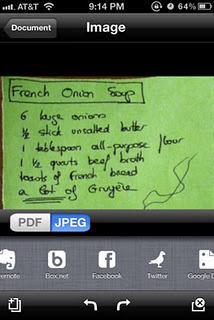 AT&T 9:14 PM 64%
Document Image
French Onion Soup
6 large onions
½ stick unsalted butter
1 tablespoon all-purpose flour
1 ½ quarts beef broth
toasts of French bread
a lot of Gruyère
PDF JPEG
ernote Box.net Facebook Twitter Google D